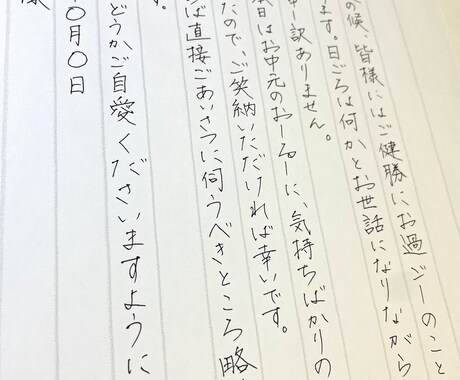 の候、皆様にはご健勝にお過ごしのこと
ます。日ごろは何かとお世話になりながら
申し訳ありません。
本日はお中元のおしるしに、気持ちばかりの
たので、ご笑納いただければ幸いです。
ば直接ごあいさつに伺うべきところ略
。
どうかご自愛くださいますように
〇月〇日
様